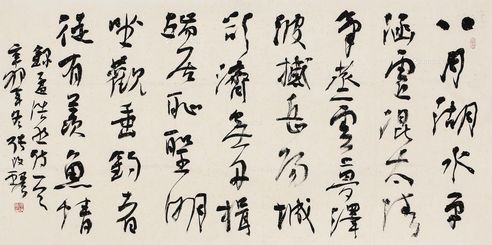 八月湖水平
涵虛混太清
氣蒸雲夢澤
波撼岳陽城
欲濟無舟楫
端居耻聖明
坐觀垂釣者
徒有羨魚情
錄孟浩然詩一首
辛卯年冬張改琴